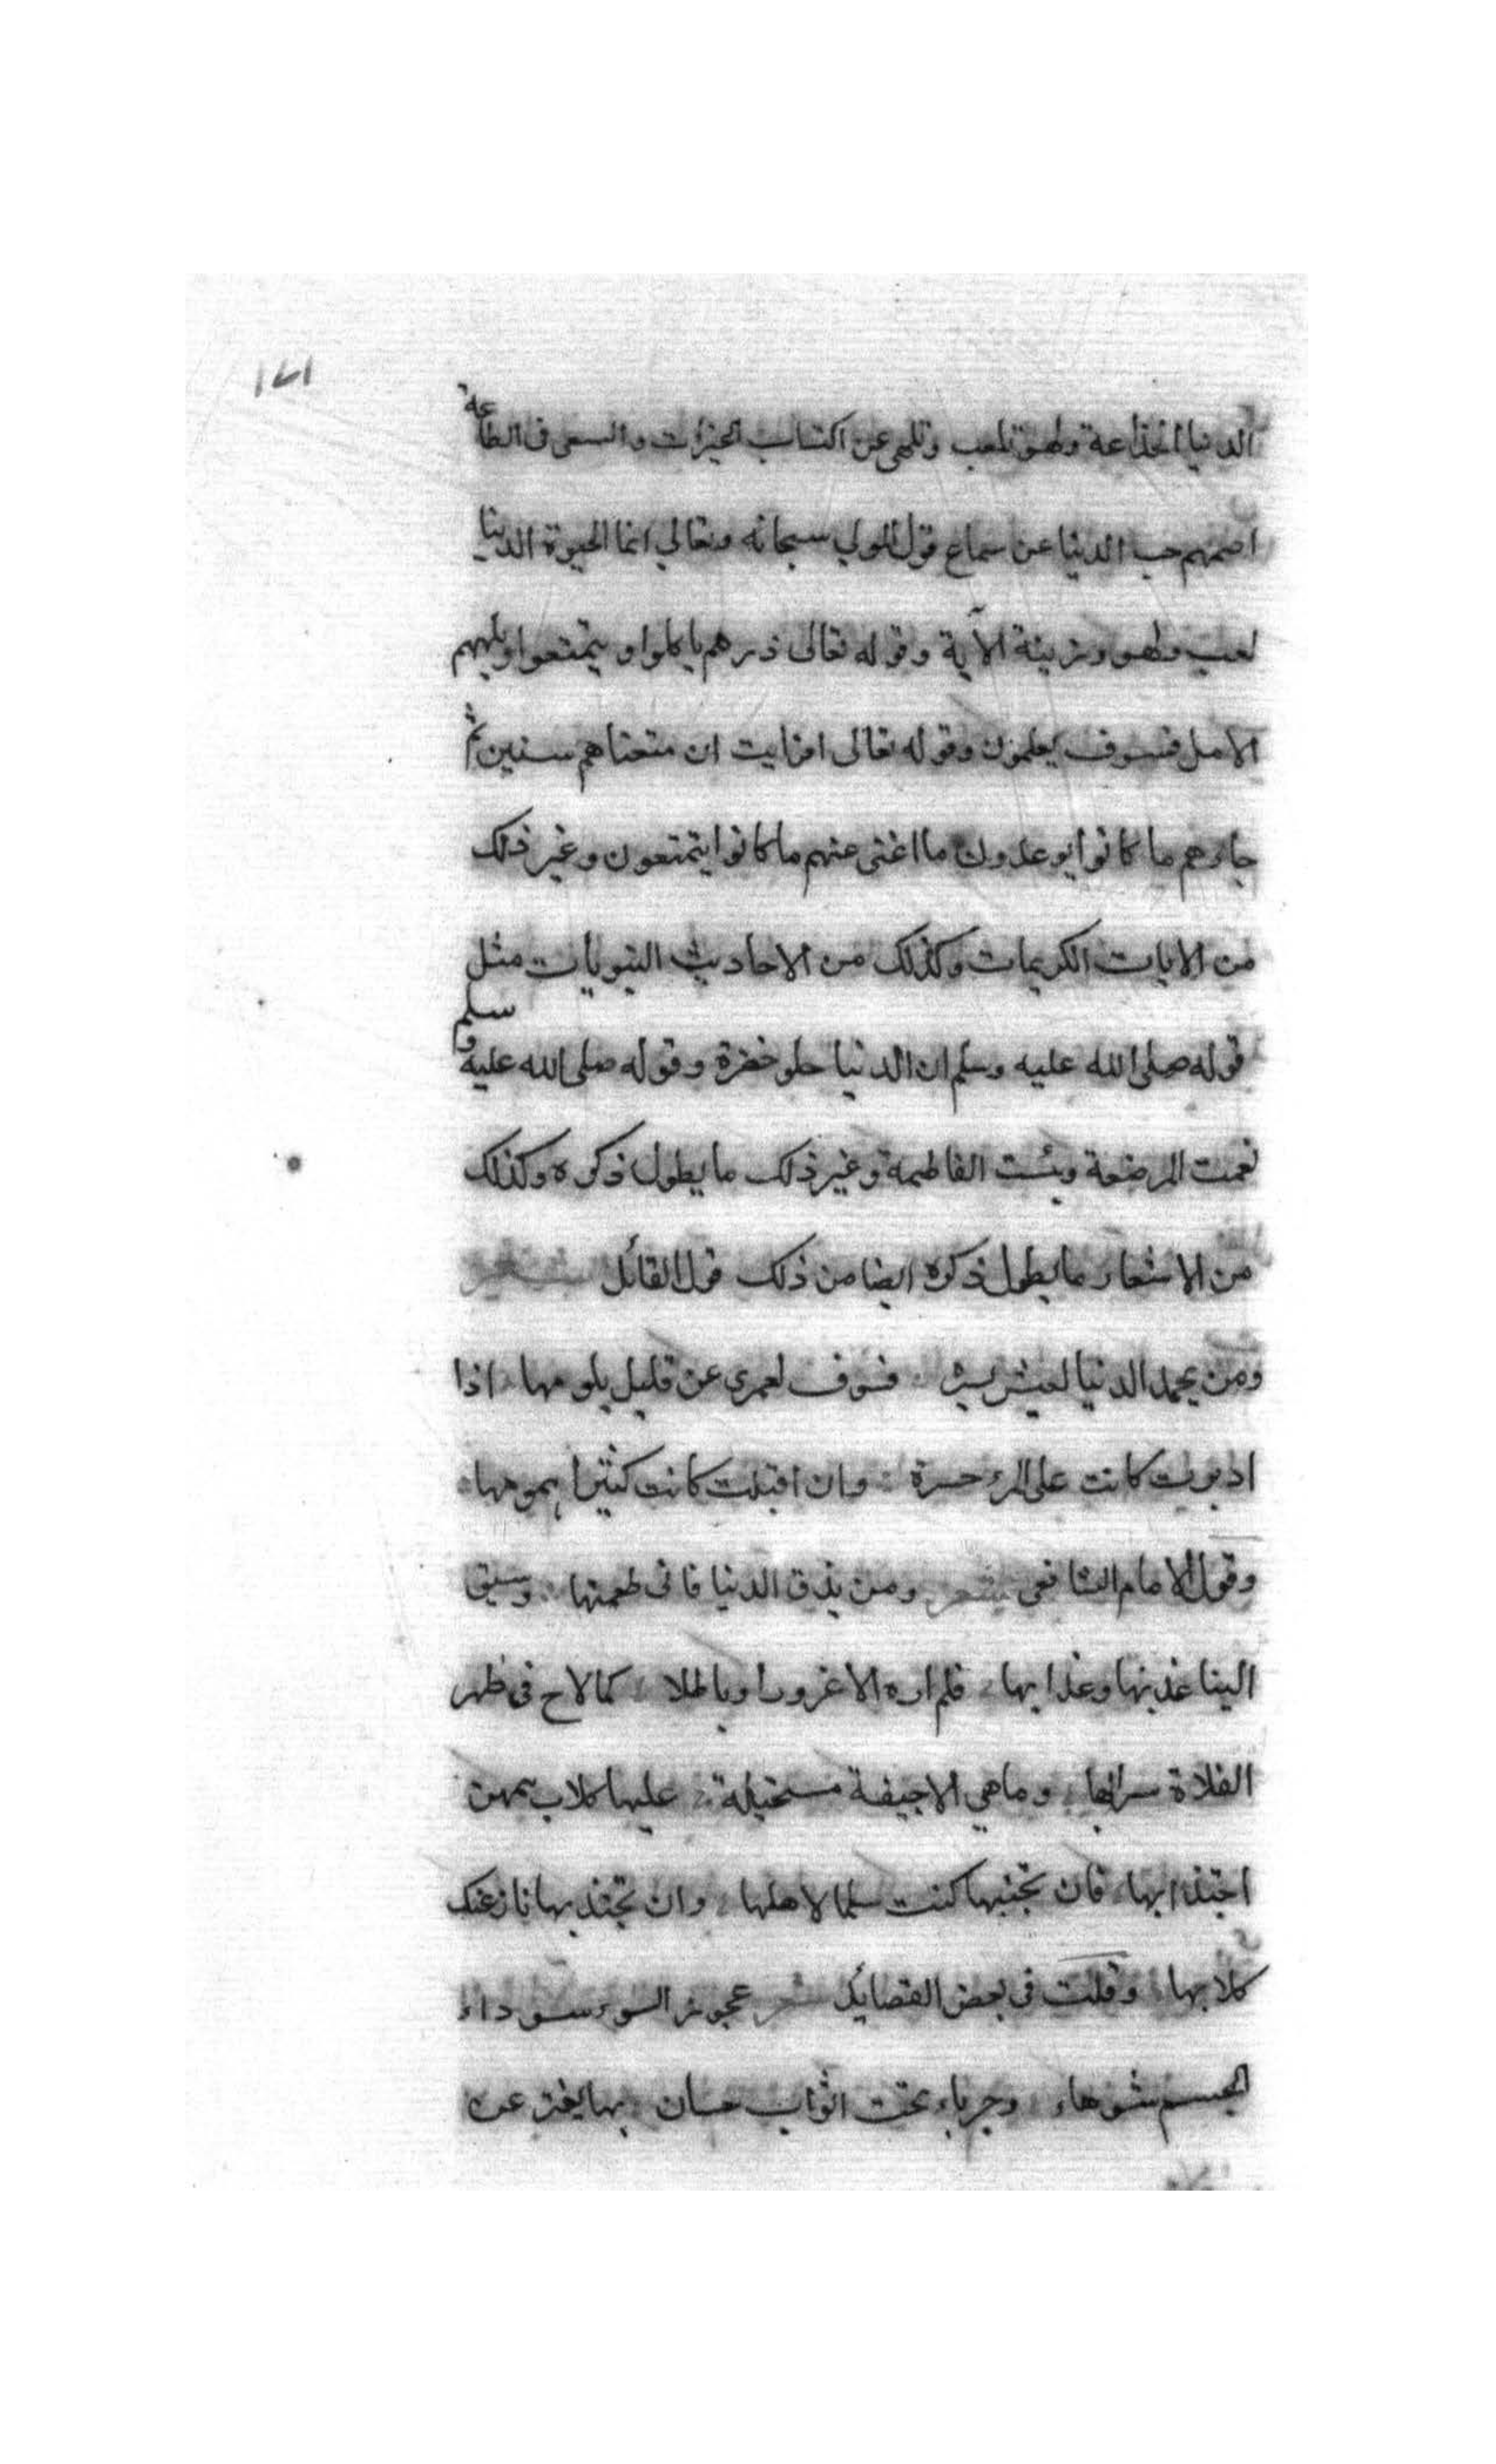 ١٧١
الدنيا الخداعة ولهو تلعب وتلهى عن اكتساب الخيرات والسعى فى الطاعة
اصمهم حب الدنيا عن سماع قول المولي سبحانه وتعالي انما الحيوة الدنيا
لعب ولهو وزينة الآية وقوله تعالى ذرهم ياكلوا ويتمتعوا ويلههم
الامل فسوف يعلمون وقوله تعالى افرايت ان متعناهم سنين ثم
جاءهم ما كانوا يوعدون ما اغنى عنهم ما كانوا يتمتعون وغير ذلك
من الايات الكريمات وكذلك من الاحاديث النبويات مثل
قوله صلى الله عليه وسلم ان الدنيا حلو خضرة وقوله صلى الله عليه وسلم
نعمت المرضعة وبئست الفاطمة وغير ذلك ما يطول ذكره وكذلك
من الاشعار ما يطول ذكره ايضا من ذلك قول القائل شعر
ومن يحمد الدنيا لعيش يسره فسوف لعمرى عن قليل يلومها اذا
ادبرت كانت على المرء حسرة وان اقبلت كانت كثيرا همومها
وقول الامام الشافعى شعر ومن يذق الدنيا فانى طعمتها وسيق
الينا عذبها وعذابها فلم اره الا غرورا وباطلا كما لاح فى ظهر
الفلاة سرابها وما هي الا جيفة مستحيلة عليها كلاب همهن
اجتذابها فان تجنبها كنت سلما لاهلها وان تجتذبها نازعتك
كلابها وقلت فى بعض القصايد شعر عجوز السوء سوداء
الجسم شوهاء وجرباء تحت اثواب حسان بها يغتر عن